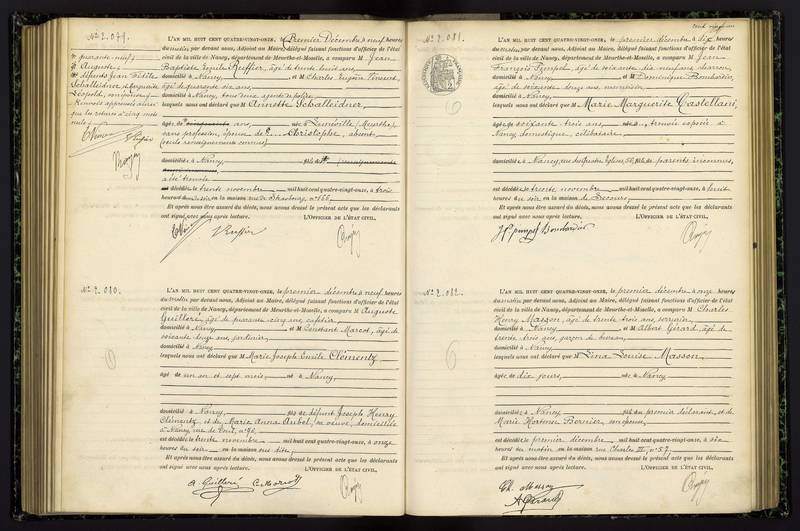 No 2.079.
quarante neuf,
Auguste,
défunts Jean Fidèle
Schalleidner, et Marguerite
Léopold,
Renvois approuvés ainsi
que les ratures
L'AN MIL HUIT CENT QUATRE-VINGT-ONZE, le Premier Décembre à neuf heures
du matin par devant nous, Adjoint au Maire, délégué faisant fonctions d'officier de l'état
civil de la ville de Nancy, département de Meurthe-et-Moselle, a comparu M Jean
Baptiste Emile Kuffier, âgé de trente huit ans,
domicilié à Nancy, et M Charles Eugène Vincent,
âgé de quarante six ans,
domicilié à Nancy, tous deux agents de police,
lesquels nous ont déclaré que M Annette Schalleidner,
âgée de ans, née à Lunéville (Meurthe),
sans profession, épouse de Christophe, absent
(seuls renseignements connus)
domiciliée à Nancy, fille de
a été trouvée
est décédée, le trente novembre mil huit cent quatre-vingt-onze, à trois
heures du soir en la maison rue de Strasbourg, no 166
Et après nous être assuré du décès, nous avons dressé le présent acte que les déclarants
ont signé avec nous après lecture. L'OFFICIER DE L'ÉTAT CIVIL,
No 2.080.
L'AN MIL HUIT CENT QUATRE-VINGT-ONZE, le premier décembre à neuf heures
du matin par devant nous, Adjoint au Maire, délégué faisant fonctions d'officier de l'état
civil de la ville de Nancy, département de Meurthe-et-Moselle, a comparu M Auguste
Guilleré, âgé de quarante cinq ans, cafetier,
domicilié à Nancy, et M Constant Marcot, âgé de
soixante douze ans, jardinier,
domicilié à Nancy
lesquels nous ont déclaré que M Marie Joseph Emile Clémentz
âgé de un an et sept mois, né à Nancy,
domicilié à Nancy, fils de défunt Joseph Henry
Clémentz, et de Marie Anna Aubel, sa veuve, domiciliée
à Nancy, rue de Toul, no 96,
est décédé, le trente novembre mil huit cent quatre-vingt-onze, à onze
heures du soir en la maison sus dite
Et après nous être assuré du décès, nous avons dressé le présent acte que les déclarants
ont signé avec nous après lecture. L'OFFICIER DE L'ÉTAT CIVIL,
A Guilleré C. Marcot
No 2.081.
L'AN MIL HUIT CENT QUATRE-VINGT-ONZE, le premier décembre à dix heures
du matin par devant nous, Adjoint au Maire, délégué faisant fonctions d'officier de l'état
civil de la ville de Nancy, département de Meurthe-et-Moselle, a comparu M Jean
François Pympel, âgé de soixante dix neuf ans, charron,
domicilié à Nancy et M Dominique Bombardier,
âgé de soixante douze ans, menuisier,
domicilié à Nancy,
lesquels nous ont déclaré que M Marie Marguerite Castellani,
âgée de soixante trois ans, née à , trouvée exposée à
Nancy, domestique, célibataire
domiciliée à Nancy, fille de parents inconnus,
est décédée, le trente novembre mil huit cent quatre-vingt-onze, à huit
heures du soir en la maison de Secours
Et après nous être assuré du décès, nous avons dressé le présent acte que les déclarants
ont signé avec nous après lecture. L'OFFICIER DE L'ÉTAT CIVIL,
Bombardier
No 2.082.
L'AN MIL HUIT CENT QUATRE-VINGT-ONZE, le premier décembre à onze heures
du matin par devant nous, Adjoint au Maire, délégué faisant fonctions d'officier de l'état
civil de la ville de Nancy, département de Meurthe-et-Moselle, a comparu M Charles
Henry Masson, âgé de trente trois ans, serrurier,
domicilié à Nancy et M Albert Gérard, âgé de
trente trois ans, garçon de bureau,
domicilié à Nancy
lesquels nous ont déclaré que M Lina Louise Masson,
âgée de dix jours, née à Nancy
domiciliée à Nancy fille du premier déclarant, et de
Marie Hortense Bernier, son épouse,
est décédée, le premier décembre mil huit cent quatre-vingt-onze, à six
heures du matin en la maison rue Charles III, no 57.
Et après nous être assuré du décès, nous avons dressé le présent acte que les déclarants
ont signé avec nous après lecture. L'OFFICIER DE L'ÉTAT CIVIL,
Ch. Masson
A. Gérard